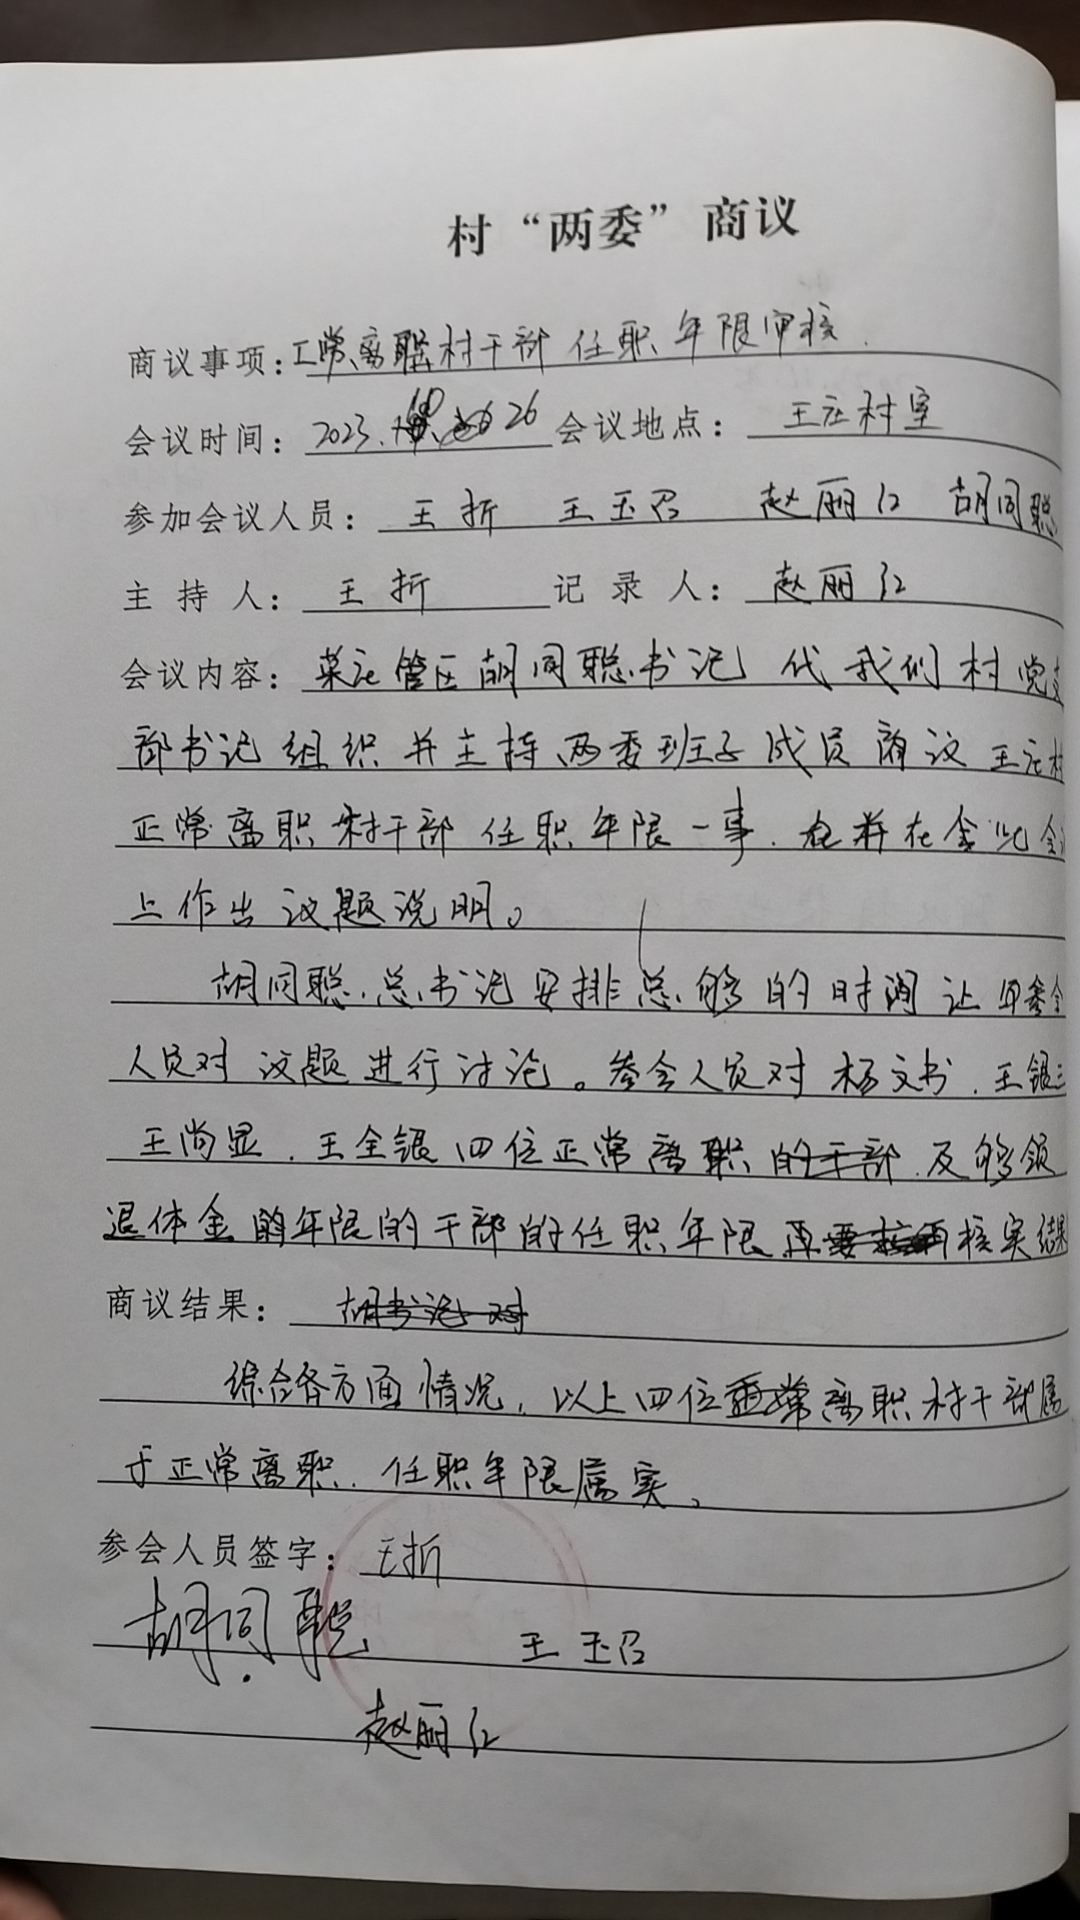 村“两委”商议
商议事项：正常离职村干部任职年限审核
会议时间：2023.10 26 会议地点：王庄村室
参加会议人员：王折 王玉召 赵丽红 胡同聪
主持人：王折 记录人：赵丽红
会议内容：菜庄管区胡同聪书记 代我们村党支
部书记组织并主持两委班子成员商议王庄村
正常离职村干部任职年限一事.并在会
上作出议题说明。
胡同聪.总书记安排总够的时间让参会
人员对议题进行讨论。参会人员对杨文书.王银三
王尚显.王全银四位正常离职的干部.及够领
退体金的年限的干部的任职年限 核实结果
商议结果：胡书记对
综合各方面情况,以上四位离职村干部属
于正常离职.任职年限属实。
参会人员签字：王折
胡同聪 王玉召
赵丽红